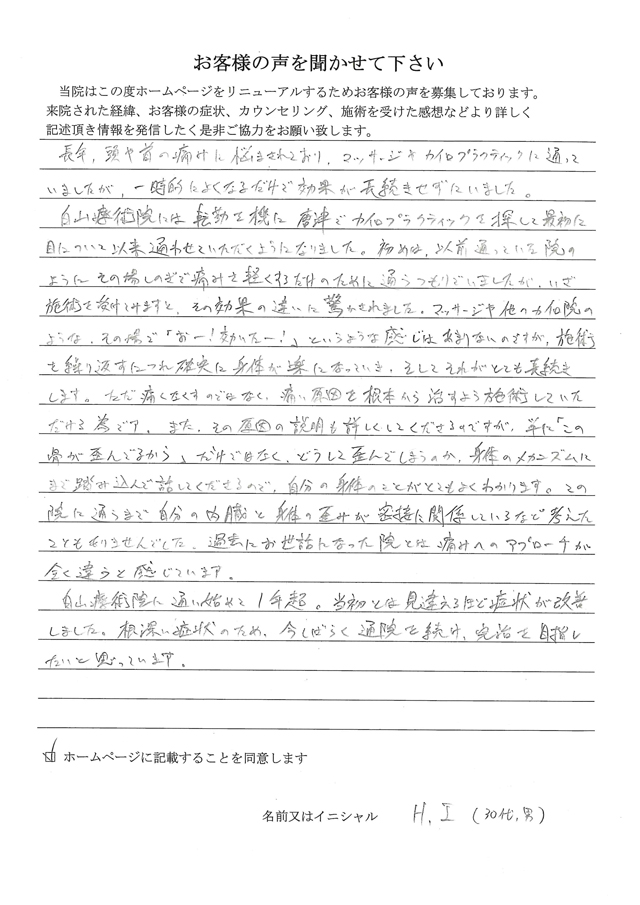 お客様の声を聞かせて下さい
当院はこの度ホームページをリニューアルするためお客様の声を募集しております。
来院された経緯、お客様の症状、カウンセリング、施術を受けた感想などより詳しく
記述頂き情報を発信したく是非ご協力をお願い致します。
長年、頭や首の痛みに悩まされており、マッサージやカイロプラクティックに通って
いましたが、一時的によくなるだけで効果が長続きせずにいました。
白山療術院には転勤を機に唐津でカイロプラクティックを探して最初に
目について以来通わせていただくようになりました。初めは、以前通っていた院の
ようにその場しのぎで痛みを軽くするだけのために通うつもりでいましたが、いざ
施術を受けてみますと、その効果の違いに驚かされました。マッサージや他のカイロ院の
ような、その場で「おー!効いたー!」というような感じはあまりないのですが、施術
を繰り返すにつれ確実に身体が楽になっていき、そしてそれがとても長続き
します。ただ痛くなくすのではなく、痛い原因を根本から治すよう施術していた
だける為です。また、その原因の説明も詳しくしてくださるのですが、単に「この
骨が歪んでるから」だけではなく、どうして歪んでしまうのか、身体のメカニズムに
まで踏み込んで話してくださるので、自分の身体のことがとてもよくわかります。この
院に通うまで自分の内臓と身体の歪みが密接に関係しているなど考えた
こともありませんでした。過去にお世話になった院とは痛みへのアプローチが
全く違うと感じています。
白山療術院に通い始めて1年超。当初とは見違えるほど症状が改善
しました。根深い症状のため、今しばらく通院を続け、完治を目指し
たいと思っています。
☑ ホームページに記載することを同意します
名前又はイニシャル H.I (30代,男)